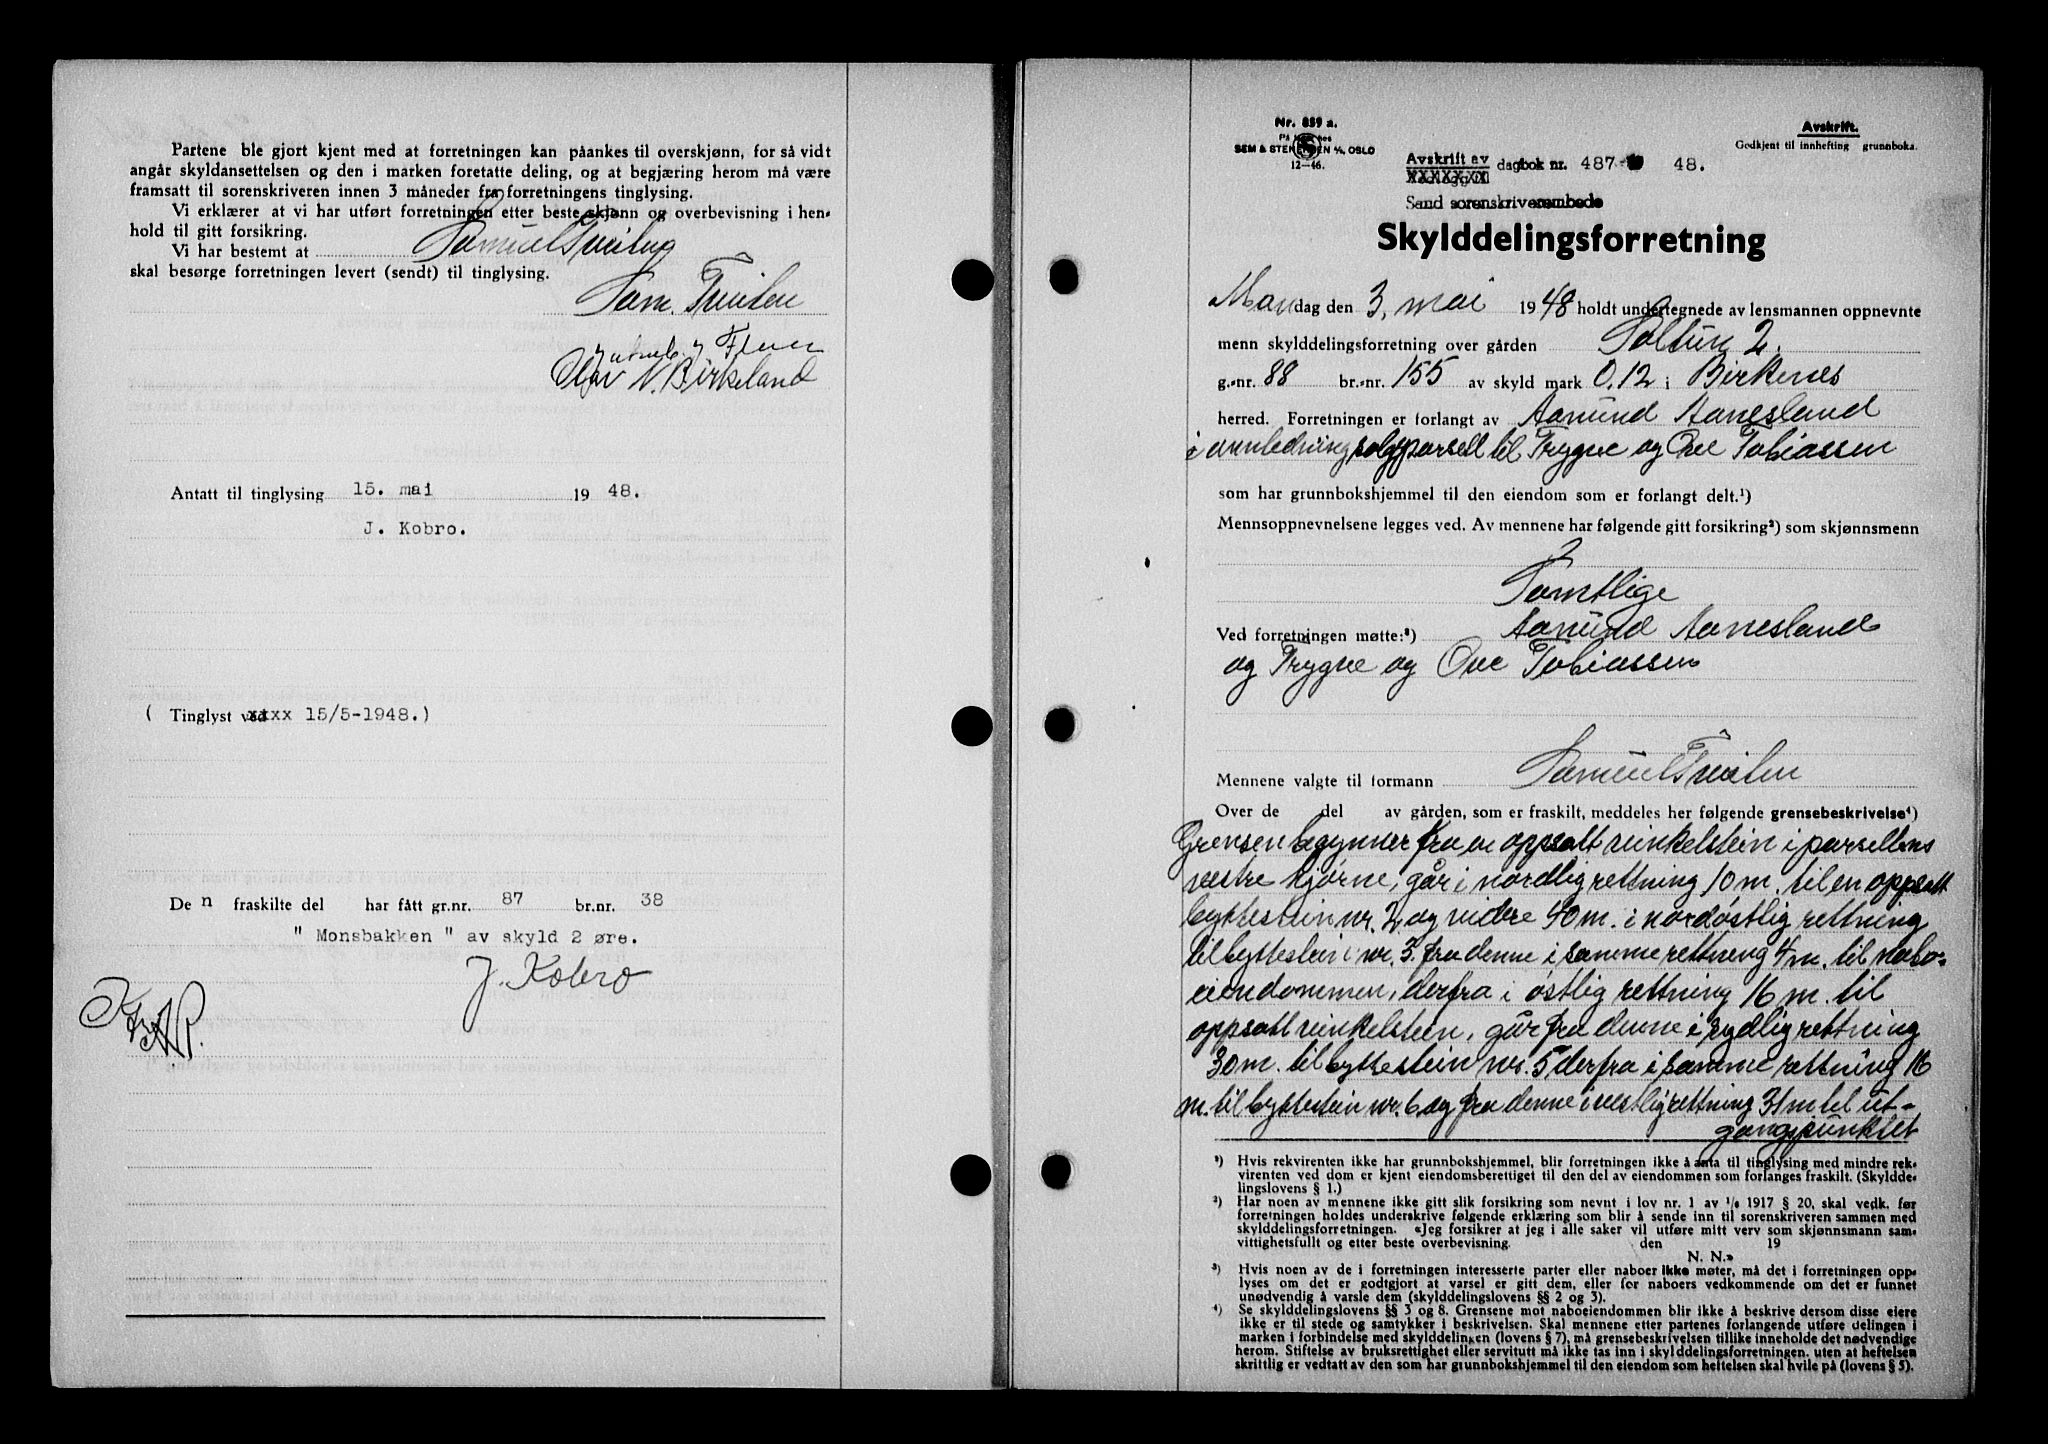 Partene ble gjort kjent med at forretningen kan påankes til overskjønn, for så vidt
angår skyldansettelsen og den i marken foretatte deling, og at begjæring herom må være
framsatt til sorenskriveren innen 3 måneder fra forretningens tinglysing.
Vi erklærer at vi har utført forretningen etter beste skjønn og overbevisning i hen-
hold til gitt forsikring.
Vi har bestemt at Samuel Tveiten
skal besørge forretningen levert (sendt) til tinglysing.
Sam. Tveiten
Olav N. Birkeland
Antatt til tinglysing 15. mai 1948.
J. Kobro.
( Tinglyst ved xxxx 15/5-1948.)
Den fraskilte del har fått gr.nr. 87 br.nr. 38
" Monsbakken " av skyld 2 øre.
J. Kobro
Nr. 859 a.
På lager hos
SEM & STENERSEN A/S, OSLO
12-46.
Avskrift.
Godkjent til innhefting grunnboka.
Avskrift av dagbok nr. 487 48.
Sand sorenskriverembede
Skylddelingsforretning
Mandag den 3. mai 1948 holdt undertegnede av lensmannen oppnevnte
menn skylddelingsforretning over gården Soltun 2.
g.-nr. 88 br.-nr. 155 av skyld mark 0,12 i Birkenes
herred. Forretningen er forlangt av Aanund Aanesland
i annledning salg parsell til Trygve og Ove Tobiassen
som har grunnbokshjemmel til den eiendom som er forlangt delt.¹)
Mennsoppnevnelsene legges ved. Av mennene har følgende gitt forsikring²) som skjønnsmenn
Samtlige
Ved forretningen møtte:³) Aanund Aanesland
og Trygve og Ove Tobiassen
Mennene valgte til formann Samuel Tveiten
Over de del av gården, som er fraskilt, meddeles her følgende grensebeskrivelse⁴)
Grensen begynner fra en oppsatt vinkelstein i parsellens
vestre hjørne, går i nordlig rettning 10 m. til en oppsatt
byttestein nr. 2 og videre 40 m. i nordøstlig rettning
til byttestein nr. 3. fra denne i samme rettning 4 m. til nabo-
eiendommen, derfra i østlig rettning 16 m. til
oppsatt vinkelstein, går fra denne i sydlig rettning
30 m. til byttestein nr. 5 derfra i samme rettning 16
m. til byttestein nr. 6 og fra denne i vestlig rettning 31 m til ut-
gangspunktet
¹) Hvis rekvirenten ikke har grunnbokshjemmel, blir forretningen ikke å anta til tinglysing med mindre rek-
virenten ved dom er kjent eiendomsberettiget til den del av eiendommen som forlanges fraskilt. (Skyldde-
lingslovens § 1.)
²) Har noen av mennene ikke gitt slik forsikring som nevnt i lov nr. 1 av 1/6 1917 § 20, skal vedk. før
forretningen holdes underskrive følgende erklæring som blir å sende inn til sorenskriveren sammen med
skylddelingsforretningen. «Jeg forsikrer at jeg i alle saker vil utføre mitt verv som skjønnsmann sam-
vittighetsfullt og etter beste overbevisning. den 19
N. N.»
³) Hvis noen av de i forretningen interesserte parter eller naboer ikke møter, må det i forretningen opp-
lyses om det er godtgjort at varsel er gitt dem, eller for naboers vedkommende om det er funnet
unødvendig å varsle dem (skylddelingslovens §§ 2 og 3).
⁴) Se skylddelingslovens §§ 3 og 8. Grensene mot naboeiendommen blir ikke å beskrive dersom disse eiere
ikke er til stede og samtykker i beskrivelsen. Skal mennene etter partenes forlangende utføre delingen i
marken i forbindelse med skylddelingen (lovens § 7), må grensebeskrivelsen tillike inneholde det nødvendige
herom. Stiftelse av bruksrettighet eller servitutt må ikke tas inn i skylddelingsforretningen, uten at heftelsen
skriftlig er vedtatt av den som har grunnbokshjemmel til den eiendom som heftelsen skal hvile på (lovens § 5).